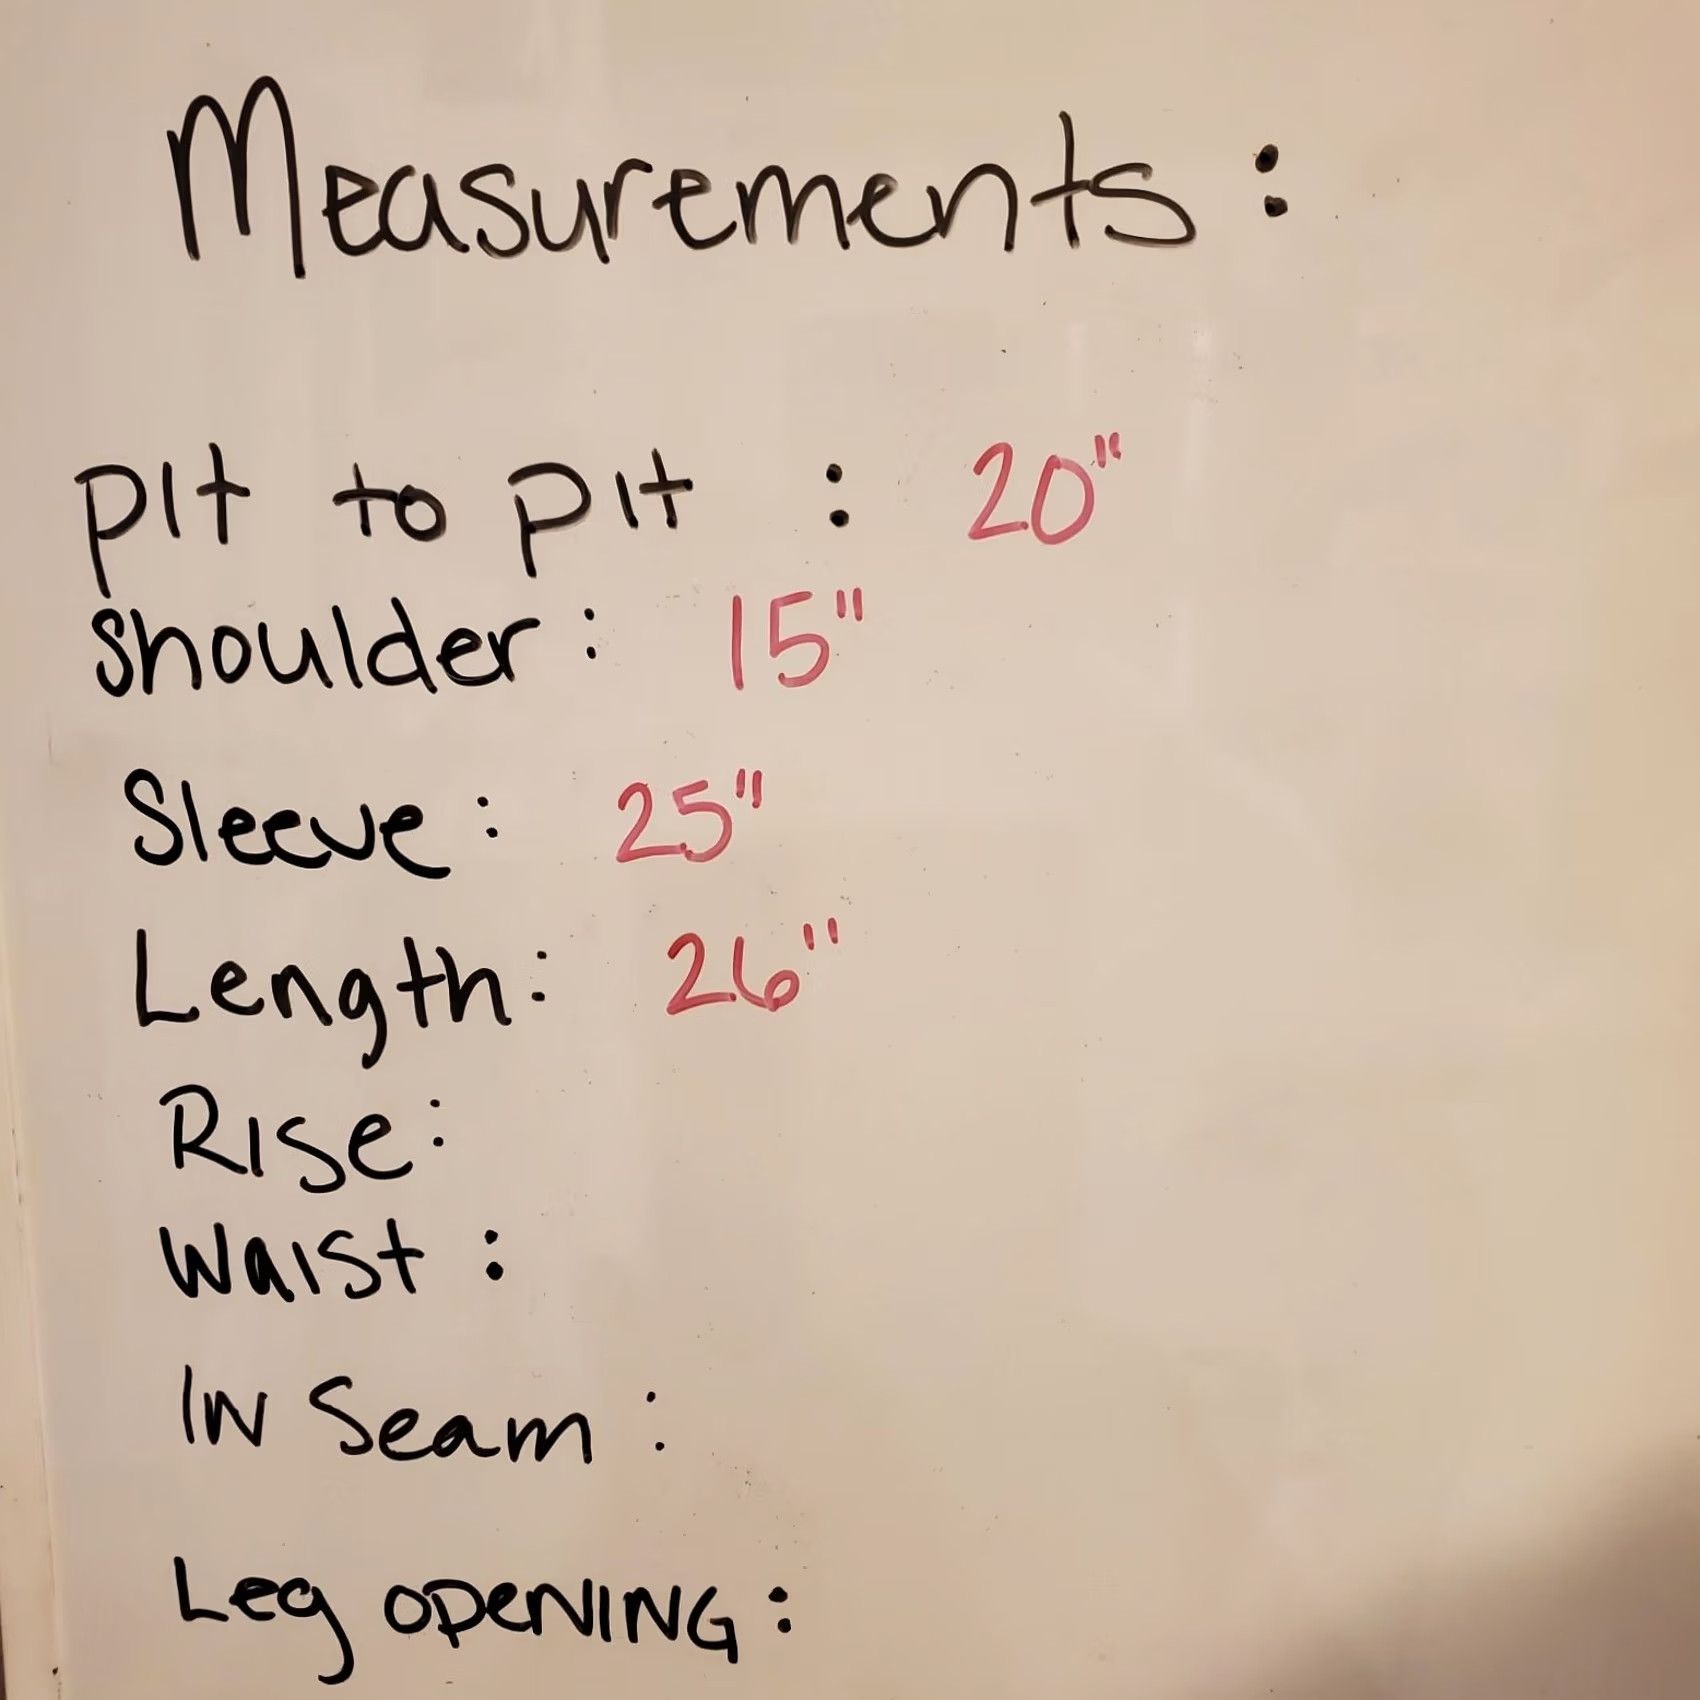 Measurements:
pit to pit : 20"
shoulder: 15"
Sleeve: 25"
Length: 26"
Rise:
Waist:
In Seam:
Leg opening: